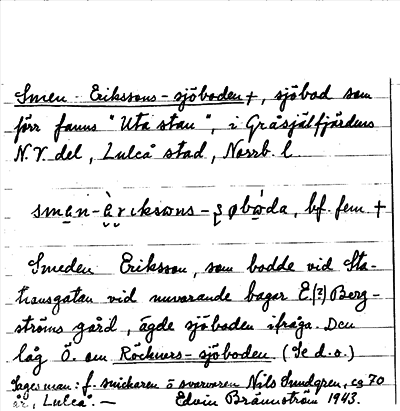 Smen-Erikssons-sjöboden †, sjöbod som
förr fanns "Uta stan", i Gråsjälfjärdens
N.V. del, Luleå stad, Norrb. l.
bf. fem. †
Smeden Eriksson, som bodde vid Sta-
tionsgatan vid nuvarande bagar E.[?] Berg-
ströms gård, ägde sjöboden ifråga. Den
låg Ö. om Röckners-sjöboden (Se d.o.)
Sagesman: f. snickaren o svarvaren Nils Sundgren, ca 70
år, Luleå. — Edvin Brännström 1943.